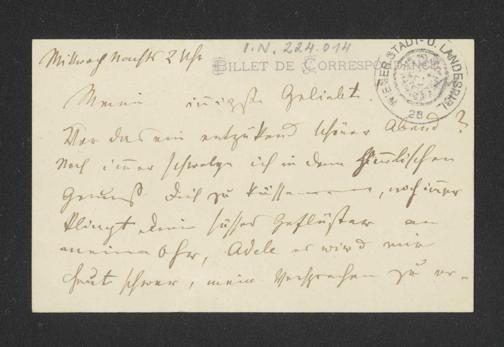 I.N. 224.014
Mittwoch Nachts 2 Uhr
BILLET DE CORRESPONDANCE
WIENER STADT- U. LANDESBIBL.
28
Meine innigste Geliebte.
War das ein entzükend schöner Abend?
Noch immer schwelge ich in dem himmlischen
Genuss Dich zu küssen, noch immer
klingt Dein süsses Geflüster an
meine Ohr, Adele es wird mir
heute schwer, mein Versprechen zu er-